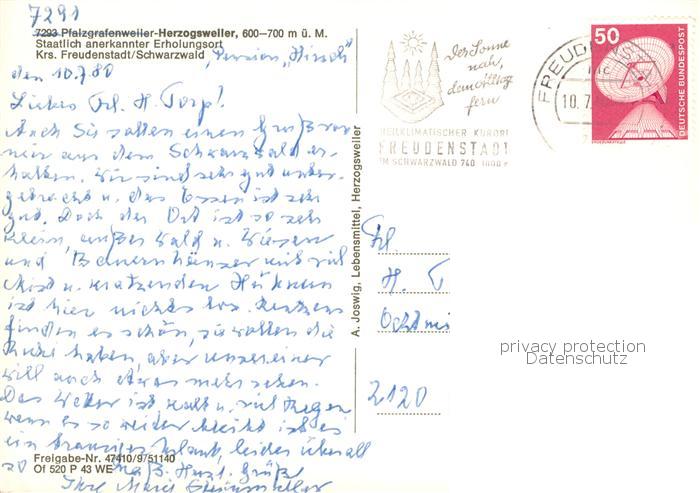 7291
7293 Pfalzgrafenweiler-Herzogsweiler, 600–700 m ü. M.
Staatlich anerkannter Erholungsort
Krs. Freudenstadt/Schwarzwald
Pension „Hirsch“
den 10.7.80
Liebes Frl. H. Torp!
Auch Sie sollen einen Gruß von
mir aus dem Schwarzwald er-
halten. Wir sind sehr gut unter-
gebracht u. das Essen ist sehr
gut. Doch der Ort ist so sehr
klein, außer Wald u. Wiesen
und Bauernhäuser mit viel
Mist u. kratzenden Hühnern
ist hier nichts los.
finden es schön, sie wollen die
Ruhe haben, aber unsereiner
will auch etwas mehr sehen.
Das Wetter ist kalt u. viel Regen
wenn es so weiter bleibt ist es
ein trauriger Urlaub, leider überall
so
Herzl. Grüße
Ihre
Freigabe-Nr. 47410/9/51140
Of 520 P 43 WE
A. Joswig, Lebensmittel, Herzogsweiler
der Sonne
nah,
dem Alltag
fern
HEILKLIMATISCHER KURORT
FREUDENSTADT
IM SCHWARZWALD 740-1000 m
FREUDENS
10.7.
50
DEUTSCHE BUNDESPOST
ERDEFUNKSTELLE
Frl.
H. T
2120
privacy protection
Datenschutz